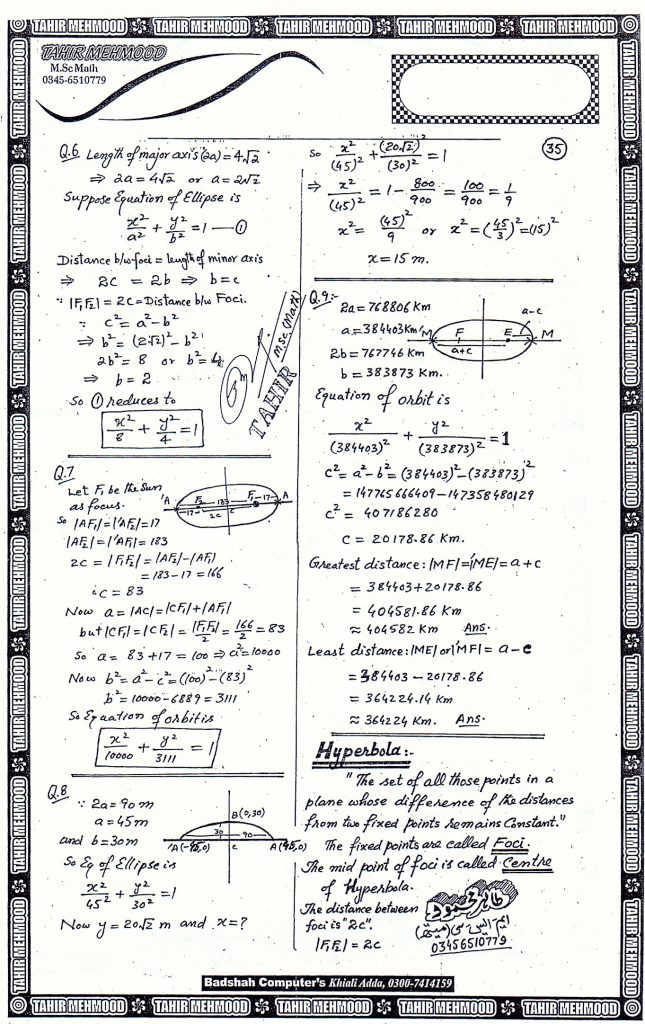 TAHIR MEHMOOD
M.Sc Math
0345-6510779
35
Q.6 Length of major axis (2a) = 4√2
⇒ 2a = 4√2 or a = 2√2
Suppose Equation of Ellipse is
x²/a² + y²/b² = 1 — ①
Distance b/w foci = length of minor axis
⇒ 2c = 2b ⇒ b = c
∵ |F₁F₂| = 2c = Distance b/w Foci.
∵ c² = a² - b²
⇒ b² = (2√2)² - b²
2b² = 8 or b² = 4
⇒ b = 2
So ① reduces to
x²/8 + y²/4 = 1
M.Sc (Math)
TAHIR
Q.7
Let F₁ be the Sun
as focus.
So |AF₁| = |'AF₂| = 17
|AF₂| = |'AF₁| = 183
2c = |F₁F₂| = |AF₂| - |AF₁|
= 183 - 17 = 166
∴ c = 83
Now a = |AC| = |CF₁| + |AF₁|
but |CF₁| = |CF₂| = |F₁F₂|/2 = 166/2 = 83
So a = 83 + 17 = 100 ⇒ a² = 10000
Now b² = a² - c² = (100)² - (83)²
b² = 10000 - 6889 = 3111
So Equation of orbit is
x²/10000 + y²/3111 = 1
'A F₂ 183 F₁ 17 A
17 2c C
Q.8
∵ 2a = 90 m
a = 45 m
and b = 30 m
So Eq of Ellipse is
x²/45² + y²/30² = 1
Now y = 20√2 m and x = ?
B(0,30)
30 90
'A(-45,0) C A(45,0)
So x²/(45)² + (20√2)²/(30)² = 1
⇒ x²/(45)² = 1 - 800/900 = 100/900 = 1/9
x² = (45)²/9 or x² = (45/3)² = (15)²
x = 15 m.
Q.9:-
2a = 768806 Km
a = 384403 Km
2b = 767746 Km
b = 383873 Km.
a-c
'M F E M
a+c
Equation of orbit is
x²/(384403)² + y²/(383873)² = 1
c² = a² - b² = (384403)² - (383873)²
= 147765666409 - 147358480129
c² = 407186280
c = 20178.86 Km.
Greatest distance: |MF| = |'ME| = a + c
= 384403 + 20178.86
= 404581.86 Km
≈ 404582 Km Ans.
Least distance: |ME| or |'MF| = a - c
= 384403 - 20178.86
= 364224.14 Km
≈ 364224 Km. Ans.
Hyperbola:-
"The set of all those points in a
plane whose difference of the distances
from two fixed points remains Constant."
The fixed points are called Foci.
The mid point of foci is called Centre
of Hyperbola.
The distance between
foci is "2c".
|F₁F₂| = 2c
طاہر محمود
ایم ایس سی (میتھ)
03456510779
Badshah Computer's Khiali Adda, 0300-7414159